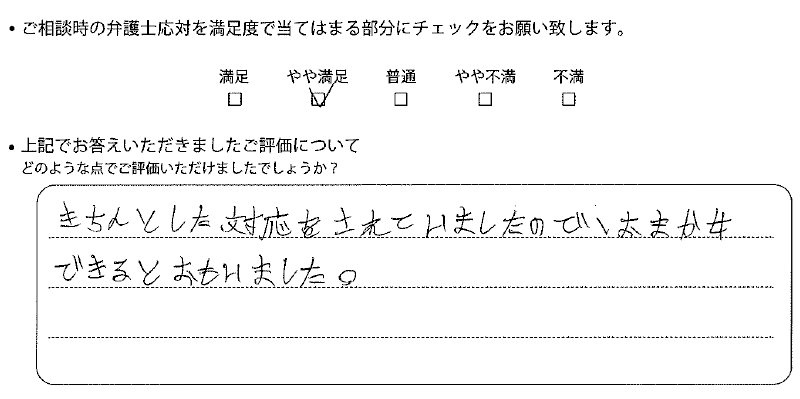 • ご相談時の弁護士応対を満足度で当てはまる部分にチェックをお願い致します。
満足 やや満足 普通 やや不満 不満
□ ☑ □ □ □
• 上記でお答えいただきましたご評価について
どのような点でご評価いただけましたでしょうか？
きちんとした対応をされていましたので、おまかせ
できるとおもいました。